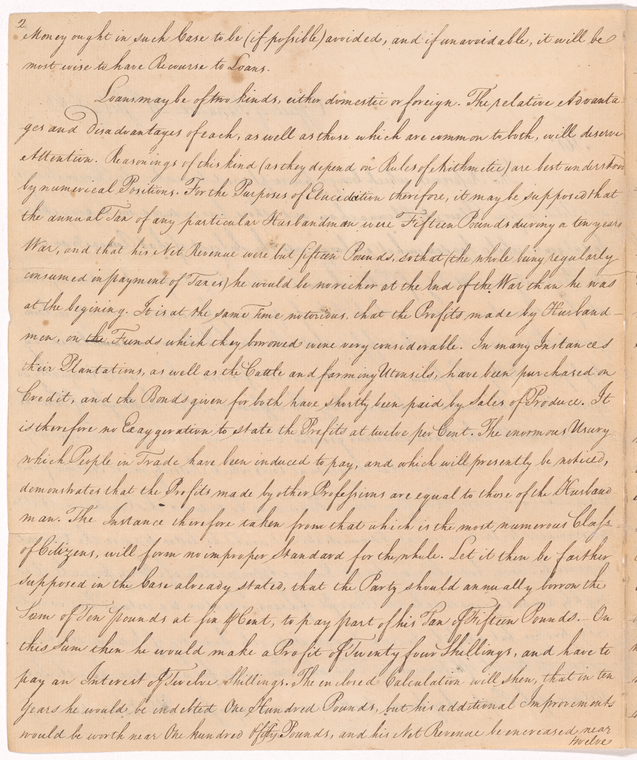 2
Money ought in such Case to be (if possible) avoided, and if unavoidable, it will be
most wise to have Recourse to Loans.
Loans may be of two kinds, either domestic or foreign. The relative Advanta
ges and Disadvantages of each, as well as those which are common to both, will deserve
Attention. Reasonings of this kind (as they depend on Rules of Arithmetic) are best understood
by numerical Positions. For the Purposes of Elucidation therefore, it may be supposed that
the annual Tax of any particular Husbandman were Fifteen Pounds during a ten years
War, and that his Net Revenue were but fifteen Pounds, so that (the whole being regularly
consumed in payment of Taxes) he would be no richer at the End of the War than he was
at the begining. It is at the same Time notorious, that the Profits made by Husband
men, on the Funds which they borrowed were very considerable. In many Instances
their Plantations, as well as the Cattle and farming Utensils, have been purchased on
Credit, and the Bonds given for both have shortly been paid by Sales of Produce. It
is therefore no Exaggeration to state the Profits at twelve per Cent. The enormous Usury
which People in Trade have been induced to pay, and which will presently be noticed,
demonstrates that the Profits made by other Professions are equal to those of the Husband
man. The Instance therefore taken from that which is the most numerous Class
of Citizens, will form no improper Standard for the whole. Let it then be farther
supposed in the Case already stated, that the Party should annually borrow the
Sum of Ten pounds at six ⅌ Cent, to pay part of his Tax of Fifteen Pounds. On
this Sum then he would make a Profit of Twenty four Shillings, and have to
pay an Interest of Twelve Shillings. The enclosed Calculation will shew, that in ten
Years he would be indebted One Hundred Pounds, but his additional Improvements
would be worth near One hundred & fifty Pounds, and his Net Revenue be encreased near
twelve